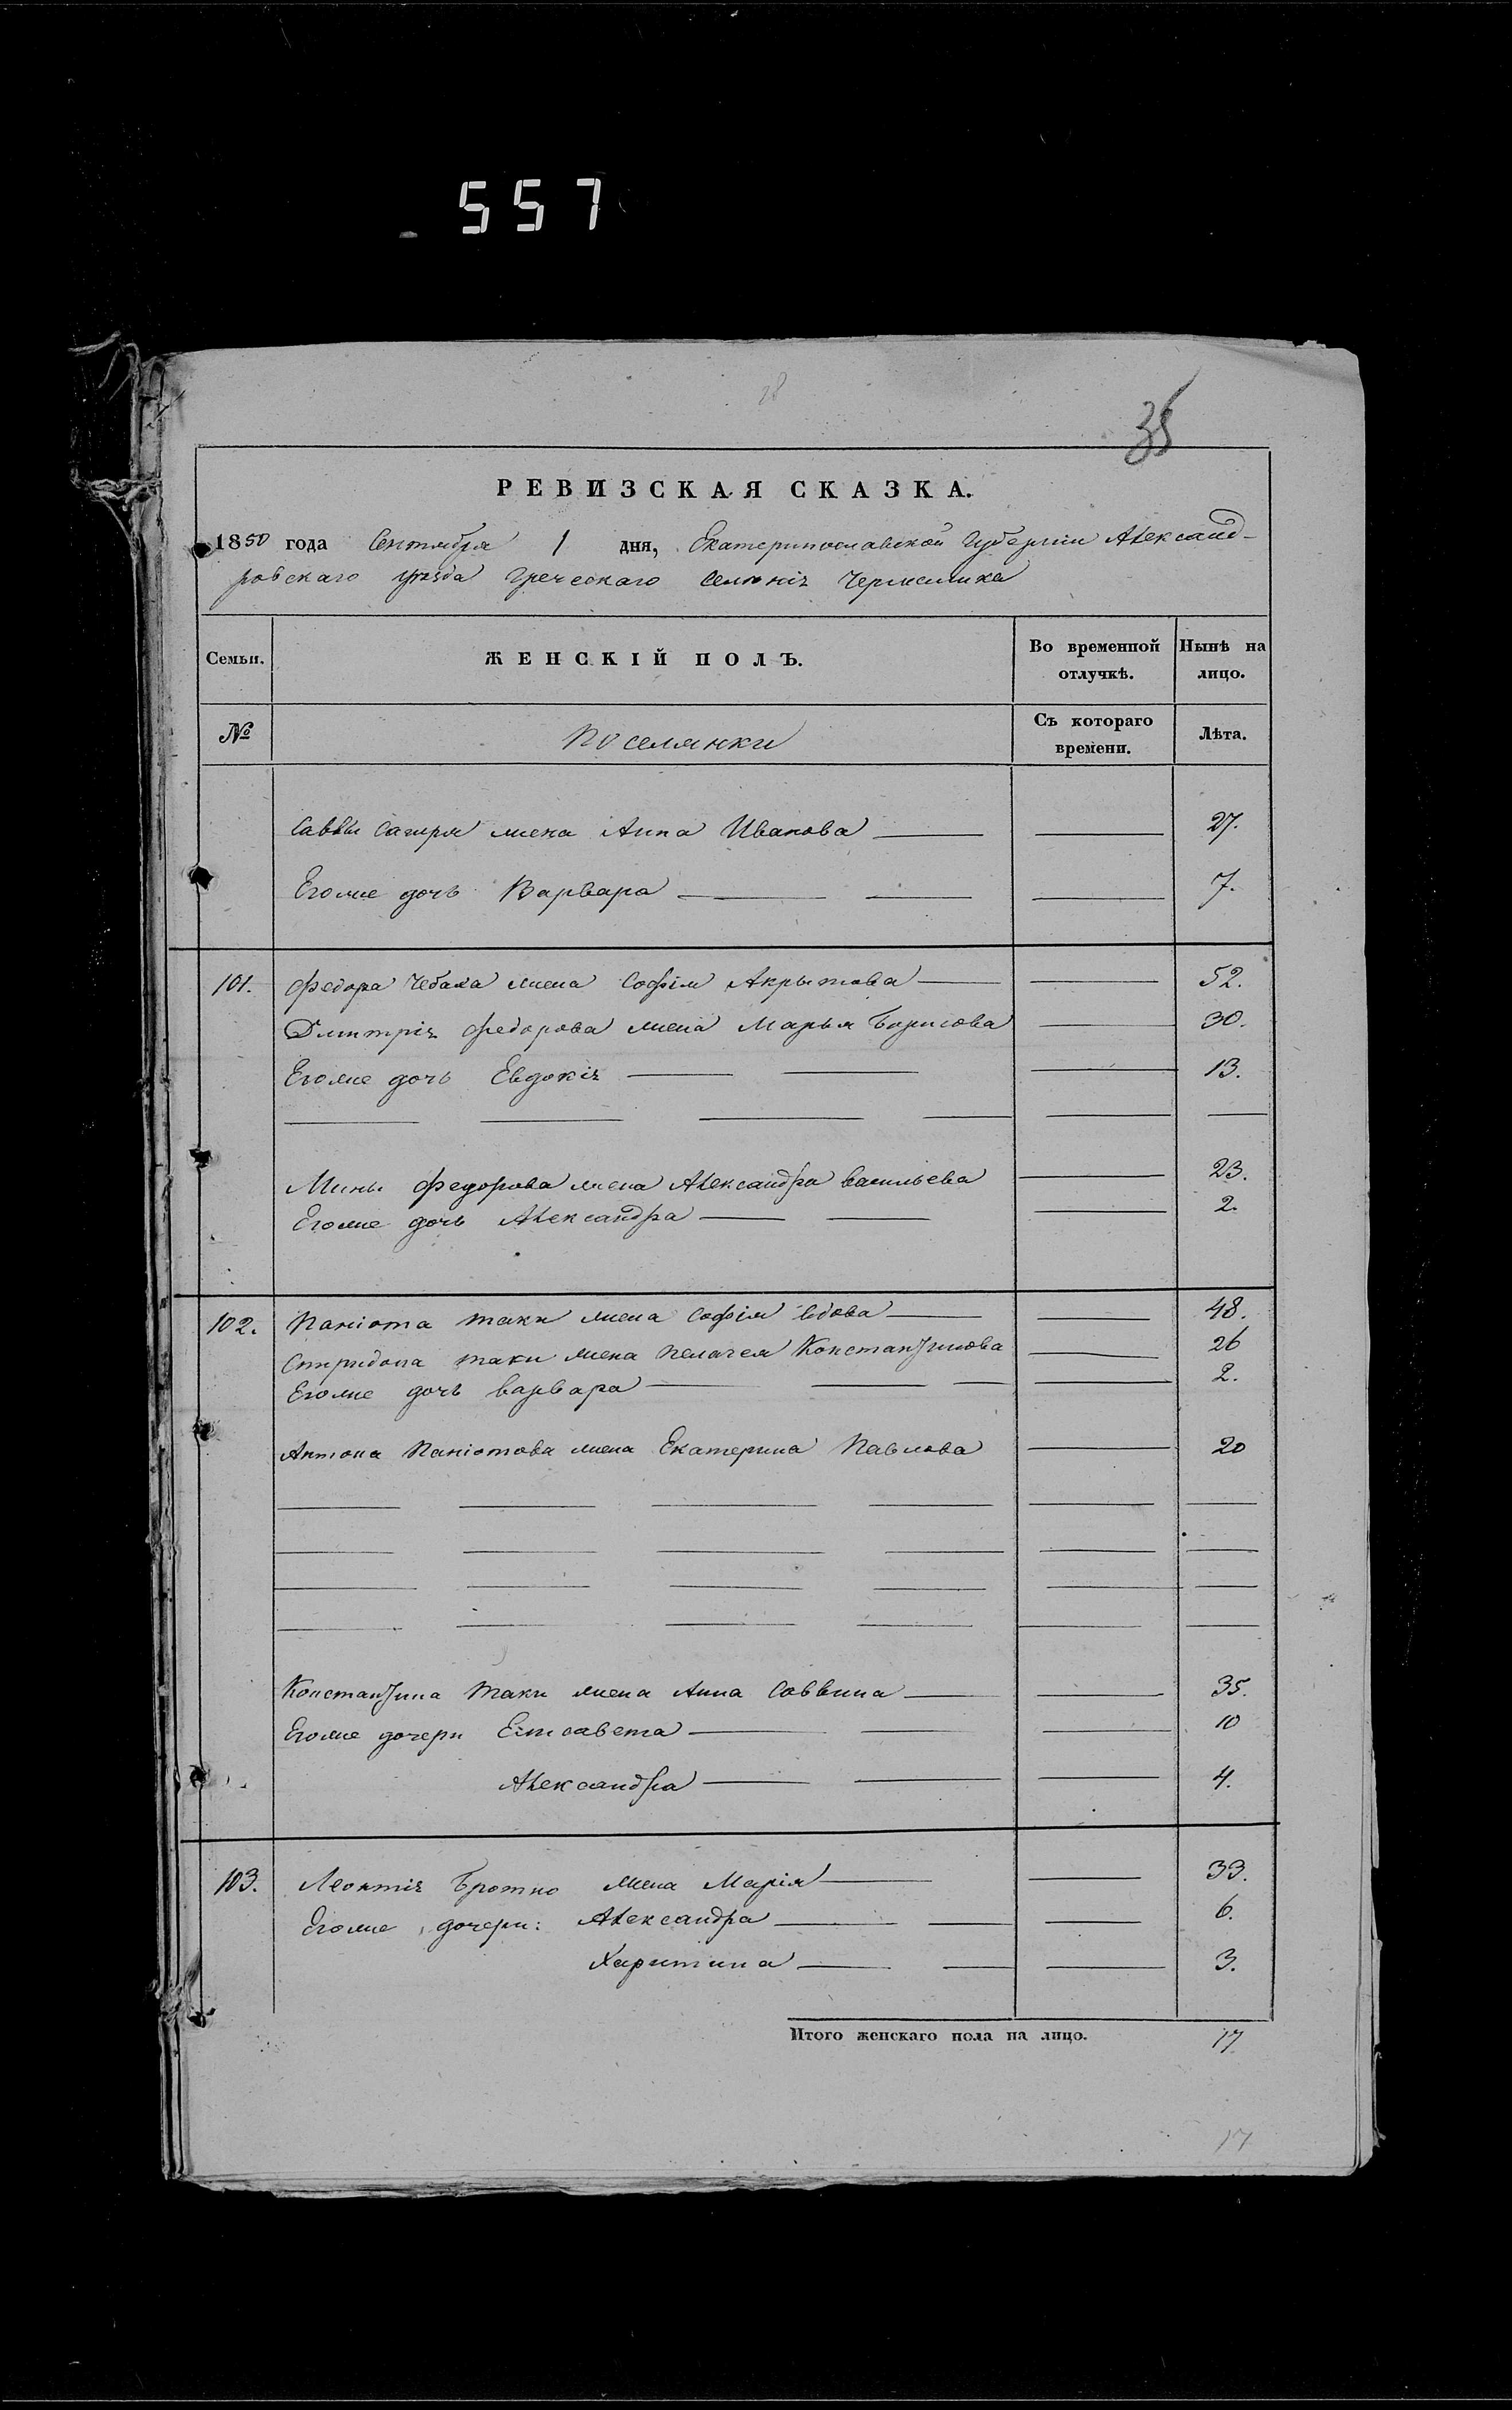 557
28
35
РЕВИЗСКАЯ СКАЗКА.
1850 года Сентября 1 дня, Екатеринославской Губерніи Александ-
ровскаго уѣзда Греческаго селенія Чермалика
Семьи. ЖЕНСКІЙ ПОЛЪ. Во временной отлучкѣ. Нынѣ на лицо.
№ Поселянки Съ котораго времени. Лѣта.
Саввы Сагиря жена Анна Иванова 27.
Егоже дочь Варвара 7.
101. Федора Чебана жена Софія Акрытова 52.
Дмитрія Федорова жена Марья Борисова 30.
Егоже дочь Евдокія 13.
Мины Федорова жена Александра Васильева 23.
Егоже дочь Александра 2.
102. Паніота Таки жена Софія вдова 48.
Спиридона Таки жена Пелагея Константинова 26
Егоже дочь Варвара 2.
Антона Паніотова жена Екатерина Павлова 20
Константина Таки жена Анна Саввина 35.
Егоже дочери Елисавета 10
Александра 4.
103. Леонтія Бротко жена Марія 33.
Егоже дочери: Александра 6.
Харитина 3.
Итого женскаго пола на лицо. 17
17